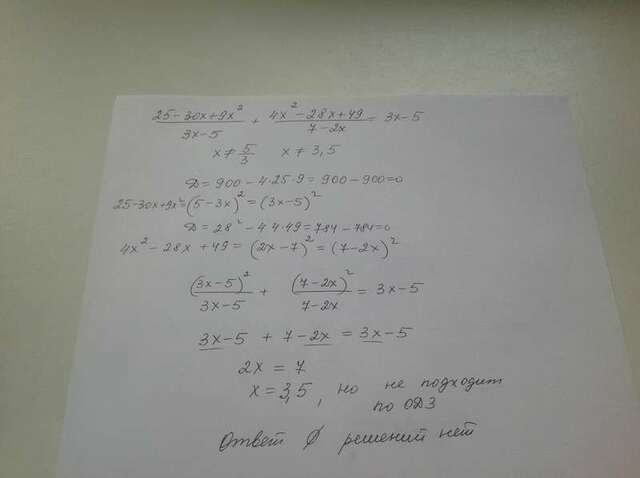 (25-30x+9x²)/(3x-5) + (4x²-28x+49)/(7-2x) = 3x-5
x ≠ 5/3 x ≠ 3,5
D = 900 - 4·25·9 = 900 - 900 = 0
25-30x+9x² = (5-3x)² = (3x-5)²
D = 28² - 4·4·49 = 784 - 784 = 0
4x² - 28x + 49 = (2x-7)² = (7-2x)²
(3x-5)²/(3x-5) + (7-2x)²/(7-2x) = 3x-5
3x-5 + 7-2x = 3x-5
2x = 7
x = 3,5, но не подходит
по ОДЗ
Ответ ∅ решений нет